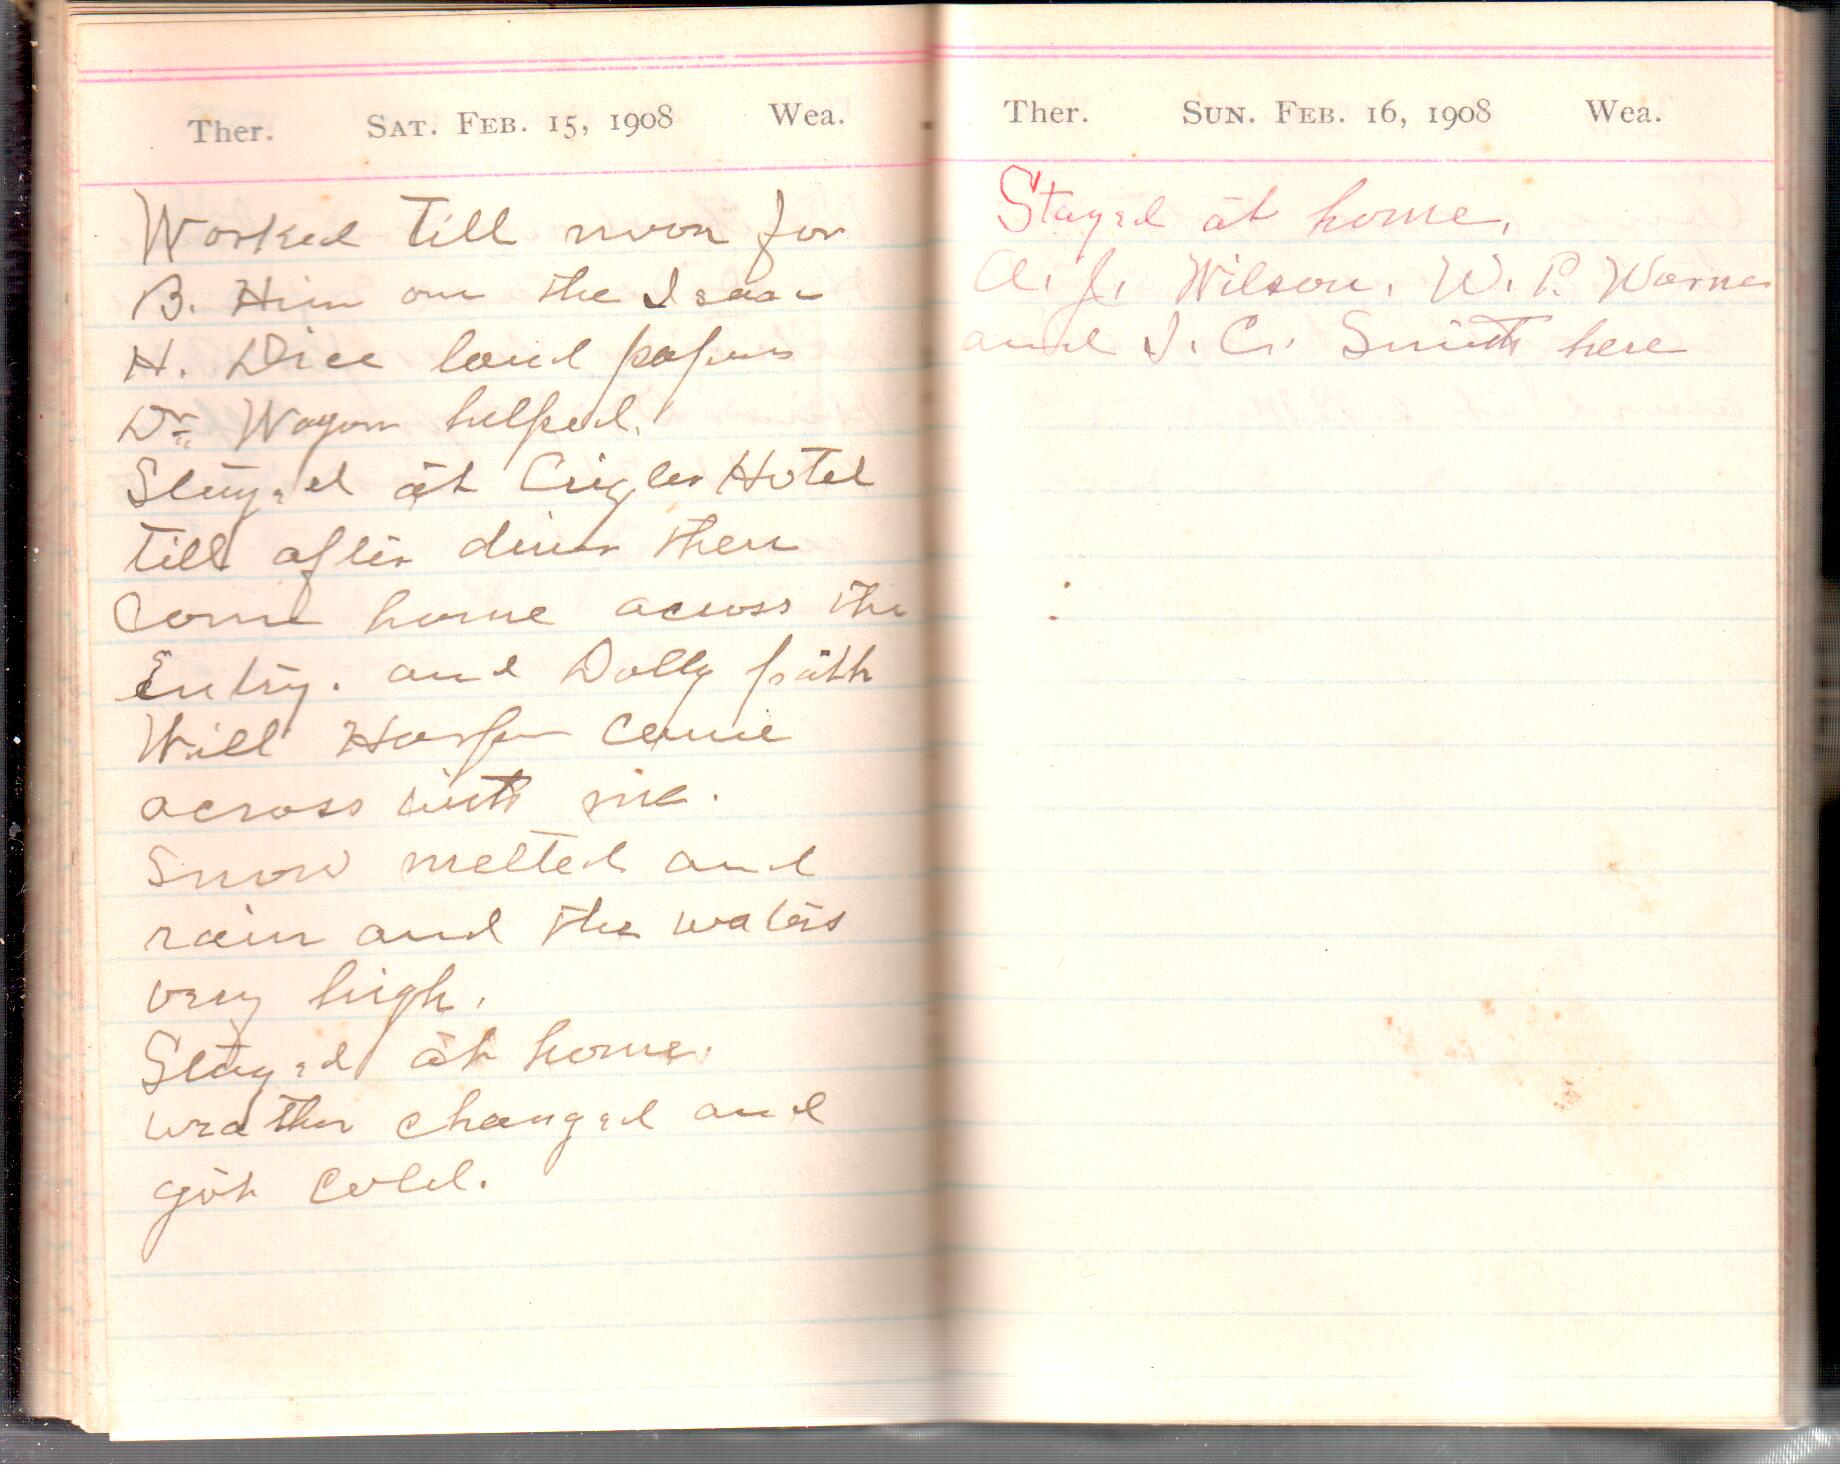 Ther. Sat. Feb. 15, 1908 Wea.
Worked till noon for
B. Him on the Isaac
H. Dice land papers
Dr Wagon helped.
Stayed at Crigler Hotel
till after diner then
Come home across the
Entry. and Dolly path
Will Harper came
across with me.
Snow melted and
rain and the waters
very high.
Stayed at home.
weather changed and
got cold.
Ther. Sun. Feb. 16, 1908 Wea.
Stayed at home.
A. J. Wilson. W. P. Warner
and I. C. Smith here